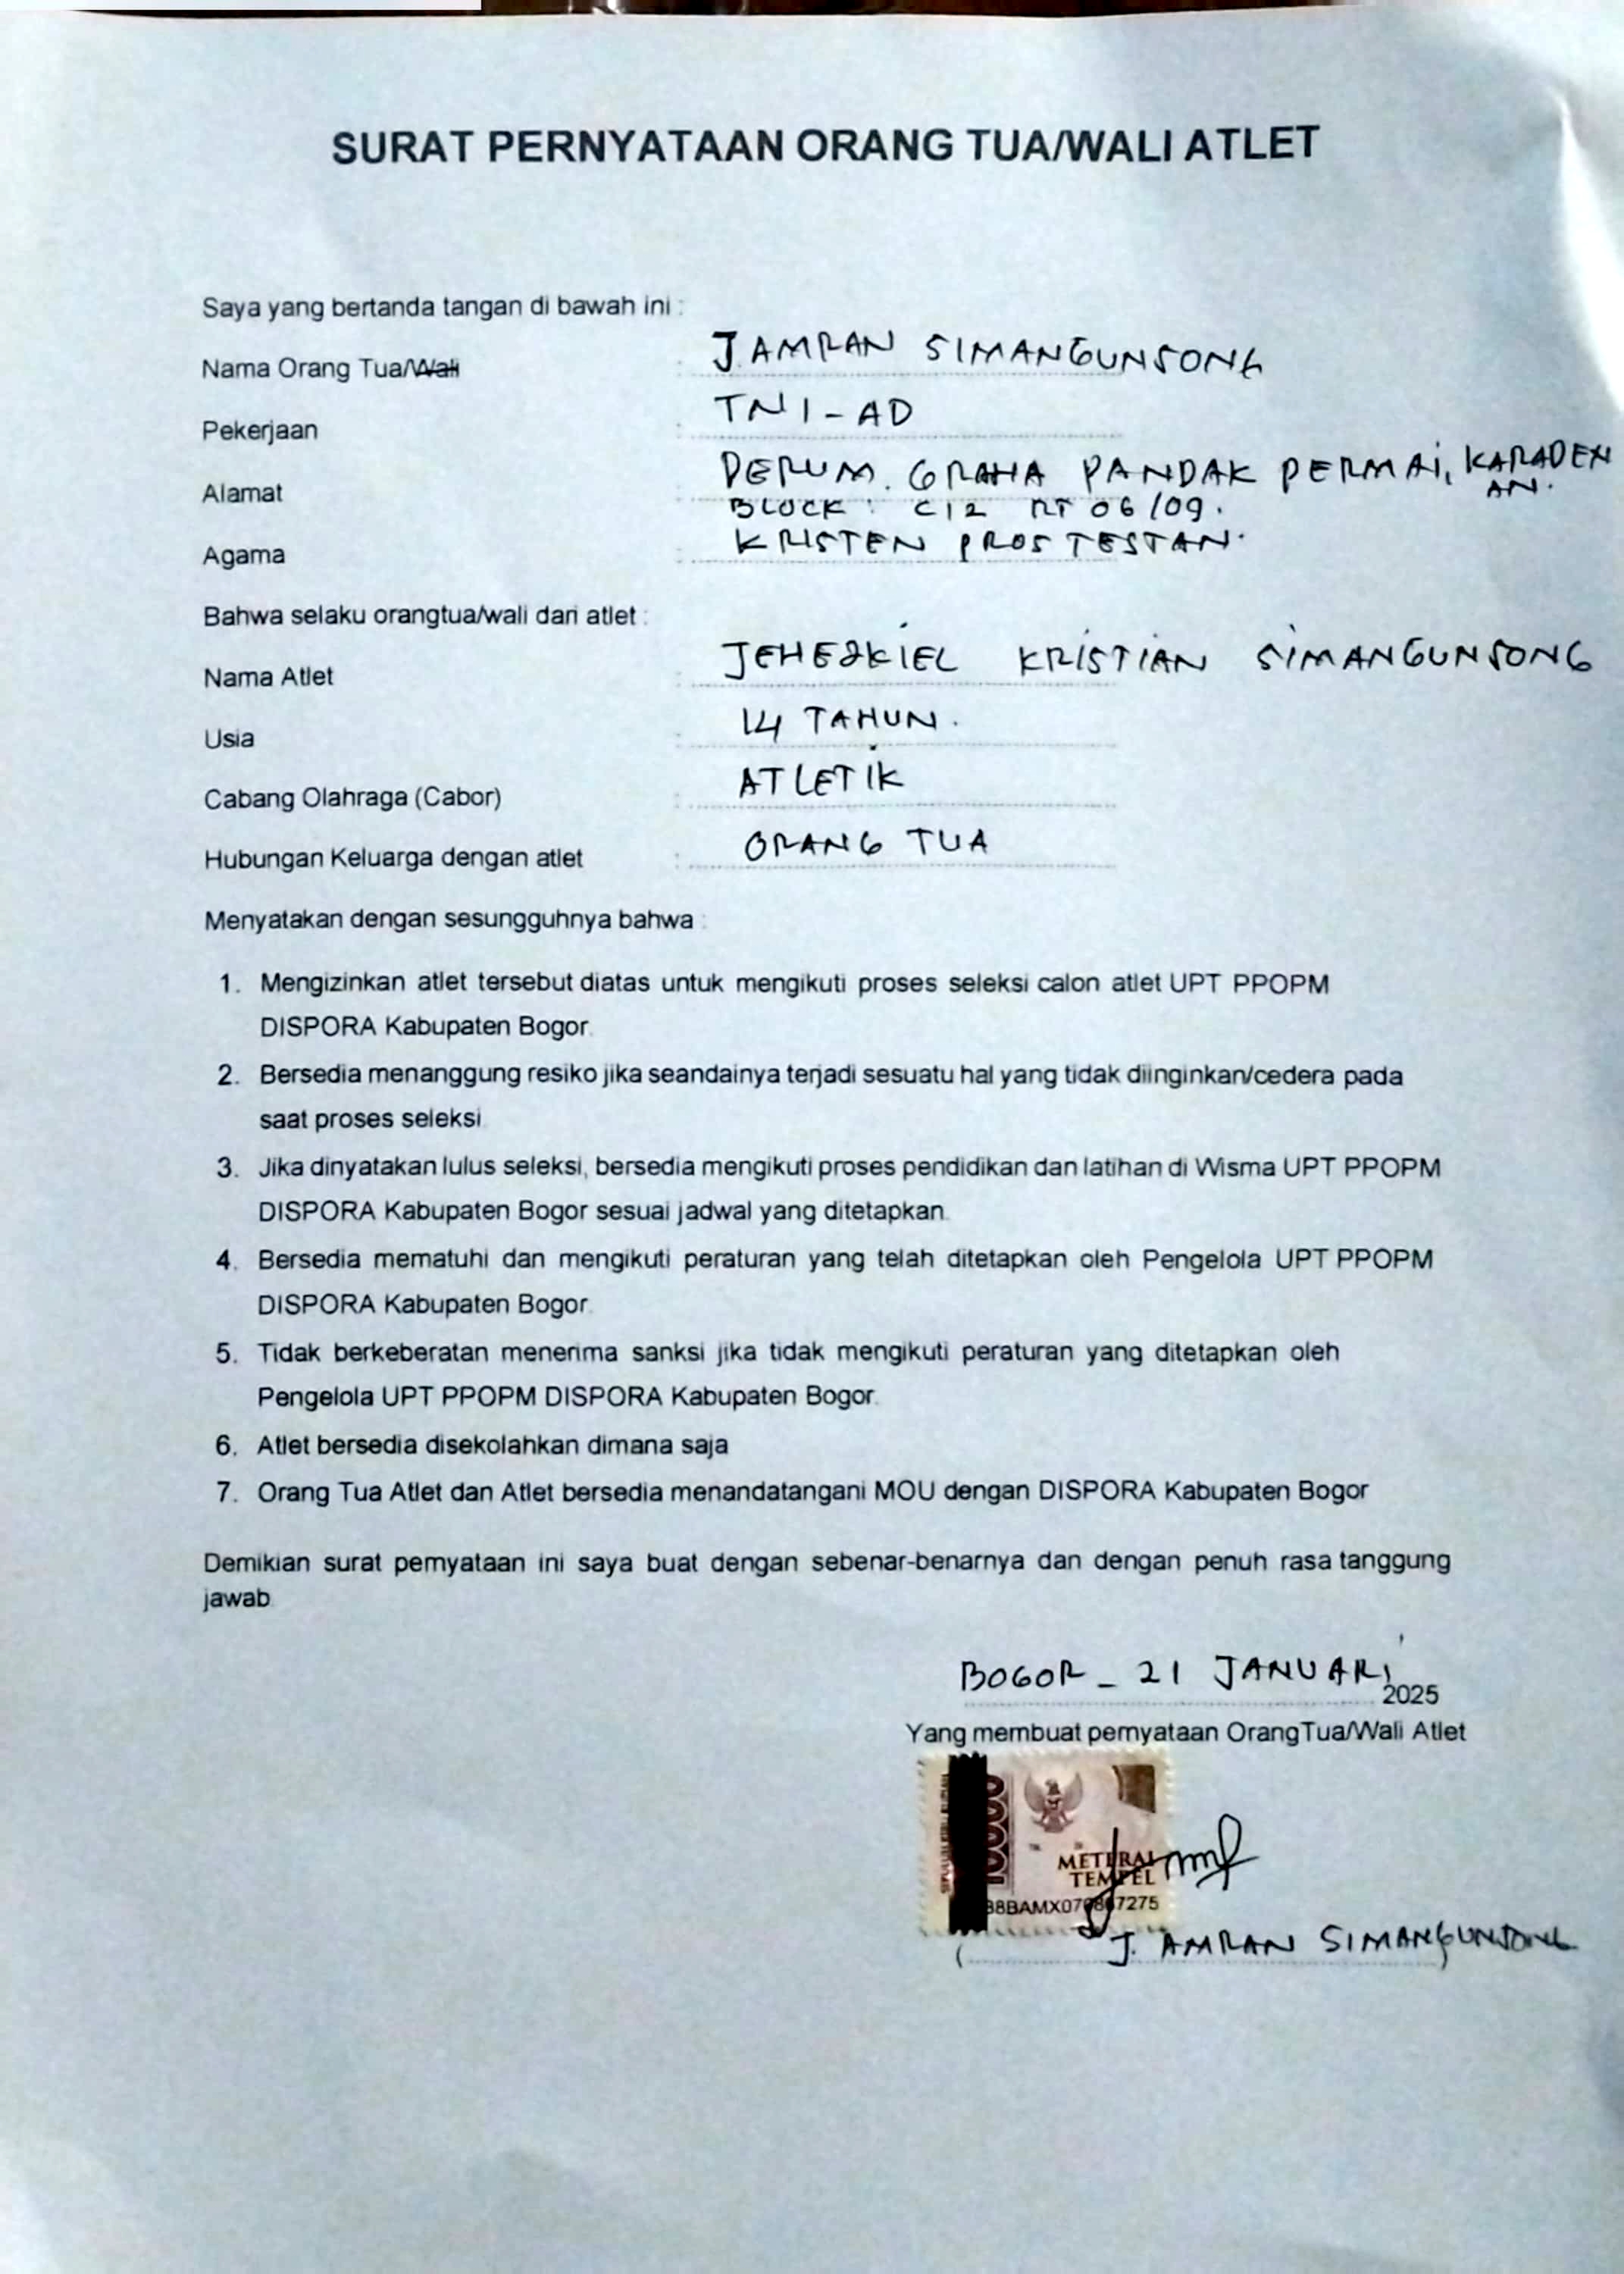 SURAT PERNYATAAN ORANG TUA/WALI ATLET
Saya yang bertanda tangan di bawah ini :
Nama Orang Tua/Wali : J. AMRAN SIMANGUNSONG
Pekerjaan : TNI - AD
Alamat : PERUM. GRAHA PANDAK PERMAI, KARADEN
AN.
BLOCK : C12 RT 06/09.
Agama : KRISTEN PROSTESTAN.
Bahwa selaku orangtua/wali dari atlet :
Nama Atlet : JEHEZKIEL KRISTIAN SIMANGUNSONG
Usia : 14 TAHUN.
Cabang Olahraga (Cabor) : ATLETIK
Hubungan Keluarga dengan atlet : ORANG TUA
Menyatakan dengan sesungguhnya bahwa :
1. Mengizinkan atlet tersebut diatas untuk mengikuti proses seleksi calon atlet UPT PPOPM
DISPORA Kabupaten Bogor.
2. Bersedia menanggung resiko jika seandainya terjadi sesuatu hal yang tidak diinginkan/cedera pada
saat proses seleksi.
3. Jika dinyatakan lulus seleksi, bersedia mengikuti proses pendidikan dan latihan di Wisma UPT PPOPM
DISPORA Kabupaten Bogor sesuai jadwal yang ditetapkan.
4. Bersedia mematuhi dan mengikuti peraturan yang telah ditetapkan oleh Pengelola UPT PPOPM
DISPORA Kabupaten Bogor.
5. Tidak berkeberatan menerima sanksi jika tidak mengikuti peraturan yang ditetapkan oleh
Pengelola UPT PPOPM DISPORA Kabupaten Bogor.
6. Atlet bersedia disekolahkan dimana saja
7. Orang Tua Atlet dan Atlet bersedia menandatangani MOU dengan DISPORA Kabupaten Bogor
Demikian surat pernyataan ini saya buat dengan sebenar-benarnya dan dengan penuh rasa tanggung
jawab.
BOGOR - 21 JANUARI 2025
Yang membuat pernyataan OrangTua/Wali Atlet
10000
METERAI
TEMPEL
(J. AMRAN SIMANGUNSONG)